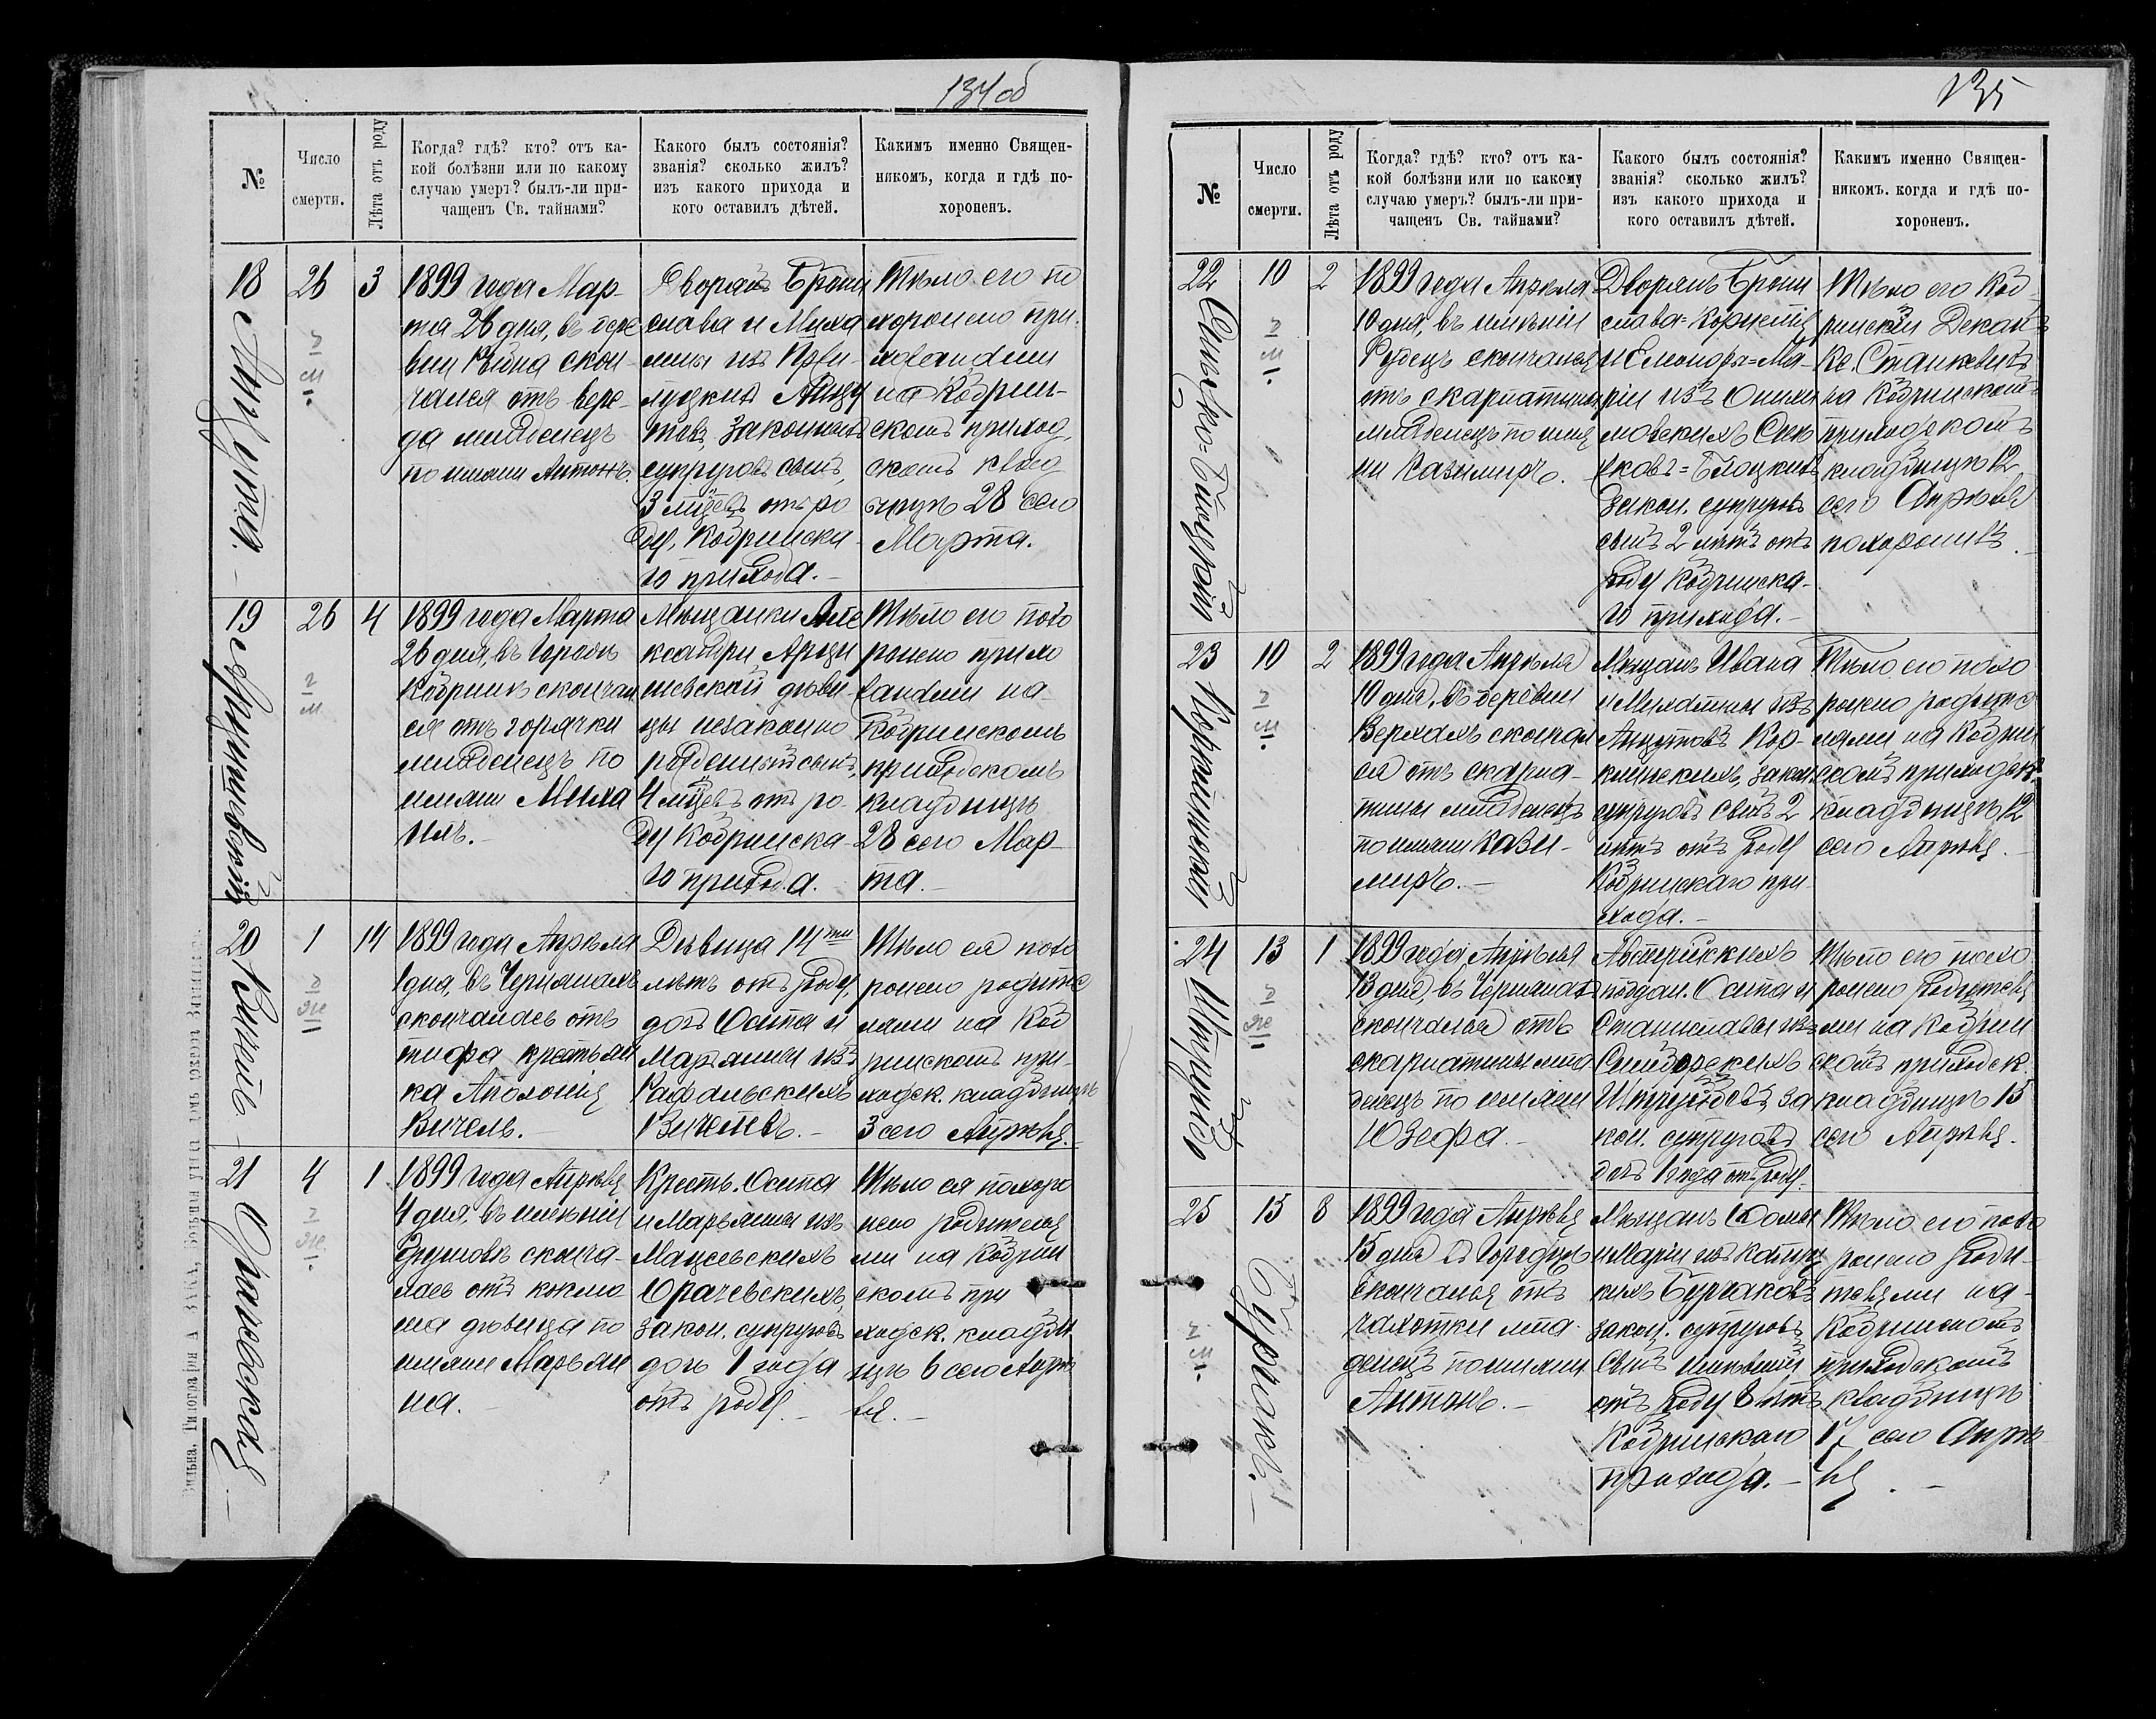 134об
№
Число
смерти.
Лѣта отъ роду
Когда? гдѣ? кто? отъ ка-
кой болѣзни или по какому
случаю умеръ? былъ-ли при-
чащенъ Св. тайнами?
Какого былъ состоянія?
званія? сколько жилъ?
изъ какого прихода и
кого оставилъ дѣтей.
Какимъ именно Священ-
никомъ, когда и гдѣ по-
хороненъ.
18
Анцута.
26
3
1899 года Мар-
та 26 дня, въ дере
вни скон-
чался отъ вере-
да младенецъ
по имяни Антонъ.
Дворянъ Брони
слава и Миха
лины изъ
Анцу
товъ, законныхъ
супруговъ сынъ,
3 м-цевъ отъ ро
ду, Кобринска-
го прихода.
Тѣло его по
хоронено при-
ходанами
на Кобрин-
скомъ приход
скомъ клад
бищѣ 28 сего
Марта.
19
Арцишевскій
26
4
1899 года Марта
26 дня, въ городѣ
Кобринѣ скончал
ся отъ горячки
младенецъ по
имяни Миха
илъ.
Мѣщанки Але
ксандры Арци
шевской дѣви-
цы незаконно
рожденный сынъ,
4 м-цевъ отъ ро-
ду Кобринска-
го прихода.
Тѣло его похо
ронено прихо
жанами на-
Кобринскомъ
приходскомъ
кладбищѣ
28 сего Мар-
та.
20
Вичель
1
14
1899 года Апрѣля
1 дня, въ Черянахъ
скончалась отъ
тифа крестьян
ка Аполонія
Вичель.
Дѣвица 14ти
лѣтъ отъ роду,
дочь Осипа и
Марьянны изъ
Рафальскихъ
Вичелевъ.
Тѣло ея похо
ронено родите
лями на Коб
ринскомъ при-
ходск. кладбищѣ
3 сего Апрѣля.
21
Орачевская
4
1
1899 года Апрѣля
4 дня, въ имѣніи
сконча-
лась отъ коклю
ша дѣвица по
имяни Марьян
на.
Крестьн. Осипа
и Марьянны изъ
Мацеевскихъ
Орачевскихъ,
закон. супруговъ
дочь 1 года
отъ роду.
Тѣло ея похоро
нено родителя
ми на Кобрин
скомъ при
ходск. кладби
щѣ 6 сего Апрѣ
ля.
135
№
Число
смерти.
Лѣта отъ роду
Когда? гдѣ? кто? отъ ка-
кой болѣзни или по какому
случаю умеръ? былъ-ли при-
чащенъ Св. тайнами?
Какого былъ состоянія?
званія? сколько жилъ?
изъ какого прихода и
кого оставилъ дѣтей.
Какимъ именно Священ-
никомъ. когда и гдѣ по-
хороненъ.
22
10
2
1899 года Апрѣля
10 дня, въ имѣніи
Рудецъ скончался
отъ скарлатины
младенецъ по имя
ни Казимиръ.
Дворянъ Брони
слава=Корнелія
и Елеоноры=Ма-
ріи изъ
закон. супруговъ
сынъ 2 лѣтъ отъ
роду Кобринска-
го прихода.
Тѣло его Коб
ринскій Декан
Кс. Станкевичъ
на Кобринскомъ
приходскомъ
кладбищѣ 12
сего Апрѣля
похоронилъ.
23
10
2
1899 года Апрѣля
10 дня, въ деревни
Верхахъ скончал
ся отъ скарла-
тины младенецъ
по имяни Кази-
миръ.
Мѣщанъ Ивана
и Михалины изъ
Анцутовъ
закон.
супруговъ сынъ 2
лѣтъ отъ роду
Кобринскаго при-
хода.
Тѣло его похо
ронено родите
лями на Кобрин
скомъ приходск.
кладбищѣ 12
сего Апрѣля.
24
13
1
1899 года Апрѣля
13 дня, въ
скончалась отъ
скарлатины мла
денецъ по имяни
Юзефа.
Австрійскихъ
поддан. Осипа и
Станиславы изъ
за
кон. супруговъ
дочь 1 года отъ роду.
Тѣло его похо
ронено родителя
ми на Кобрин
скомъ приходск.
кладбищѣ 15
сего Апрѣля.
25
Бурчакъ.
15
8
1899 года Апрѣля
15 дня въ
скончался отъ
чахотки мла
денецъ по имяни
Антонъ.
Мѣщанъ Фомы
и Маріи изъ
Бурчаковъ
закон. супруговъ
сынъ имѣвшій
отъ роду 8 лѣтъ
Кобринскаго
прихода.
Тѣло его похо
ронено роди-
телями на-
Кобринскомъ
приходскомъ
кладбищѣ
17 сего Апрѣ
ля.